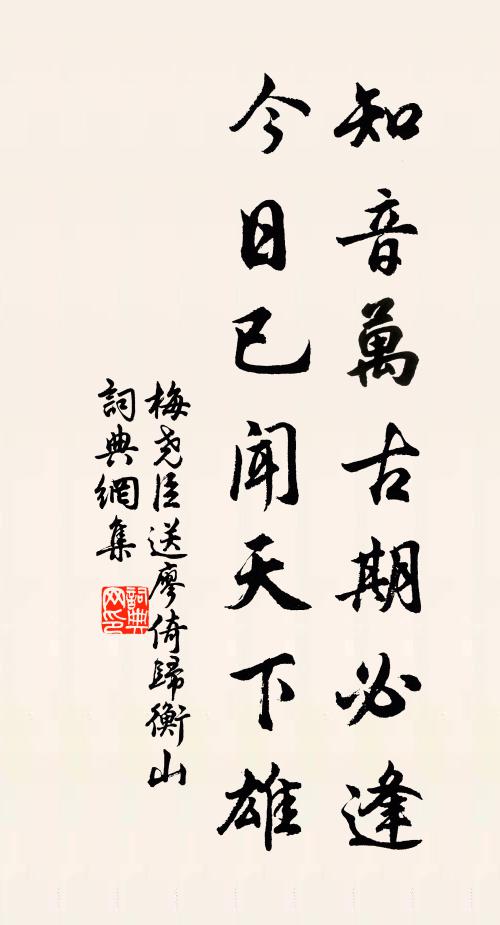 知音萬古期必逢
今日已聞天下雄
梅尧臣送廖倚歸衡山
詞典網集
詞典网印